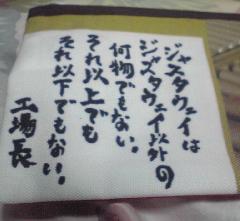 ジャスタウェイは
ジャスタウェイ以外の
何物でもない。
それ以上でも
それ以下でもない。
工場長